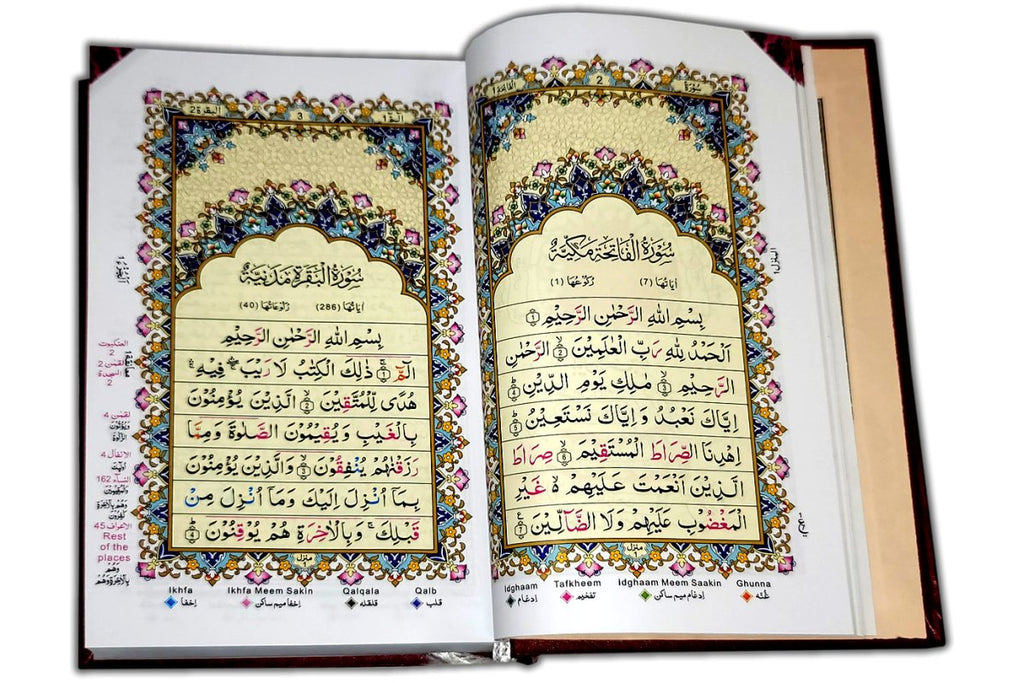 سُوْرَة 2 الفاتحة 1
سُوْرَةُ الْفَاتِحَةِ مَكِّيَّةٌ
اٰيَاتُهَا (7) رُكُوْعُهَا (1)
بِسْمِ اللّٰهِ الرَّحْمٰنِ الرَّحِيْمِ ۝1
اَلْحَمْدُ لِلّٰهِ رَبِّ الْعٰلَمِيْنَ ۝2 الرَّحْمٰنِ
الرَّحِيْمِ ۝3 مٰلِكِ يَوْمِ الدِّيْنِ ۝4
اِيَّاكَ نَعْبُدُ وَ اِيَّاكَ نَسْتَعِيْنُ ۝5
اِهْدِنَا الصِّرَاطَ الْمُسْتَقِيْمَ ۝6 صِرَاطَ
الَّذِيْنَ اَنْعَمْتَ عَلَيْهِمْ ۙ غَيْرِ
الْمَغْضُوْبِ عَلَيْهِمْ وَلَا الضَّآلِّيْنَ ۝7
منزل 1
Idghaam Tafkheem Idghaam Meem Saakin Ghunna
اِدغام تفخيم اِدغام ميم ساكن غُنّه
البقرة 2 3 الٓمّٓ 1
سُوْرَةُ الْبَقَرَةِ مَدَنِيَّةٌ
اٰيَاتُهَا (286) رُكُوْعَاتُهَا (40)
بِسْمِ اللّٰهِ الرَّحْمٰنِ الرَّحِيْمِ
الٓمّٓ ۝1 ذٰلِكَ الْكِتٰبُ لَا رَيْبَ ۛ فِيْهِ ۛ
هُدًى لِّلْمُتَّقِيْنَ ۝2 الَّذِيْنَ يُؤْمِنُوْنَ
بِالْغَيْبِ وَ يُقِيْمُوْنَ الصَّلٰوةَ وَ مِمَّا
رَزَقْنٰهُمْ يُنْفِقُوْنَ ۝3 وَالَّذِيْنَ يُؤْمِنُوْنَ
بِمَآ اُنْزِلَ اِلَيْكَ وَمَآ اُنْزِلَ مِنْ
قَبْلِكَ ۚ وَبِالْاٰخِرَةِ هُمْ يُوْقِنُوْنَ ۝4
منزل 1
العنكبوت
2
لقمٰن 2
السجدة
2
لقمٰن 4
الانفال 4
النسآء 162
الاعراف 45
Rest
of the
places
Ikhfa Ikhfa Meem Sakin Qalqala Qalb
اِخفا اِخفا ميم ساكن قلقله قلب